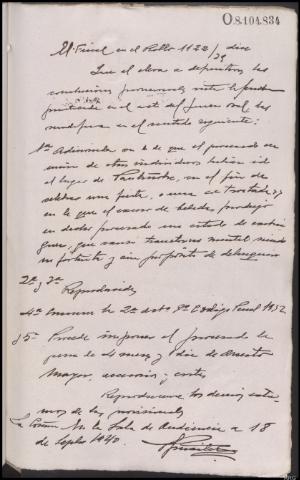 O.8.104.834
El Fiscal en el Rollo 1122/39 dice
Que al elevar a definitivas las
conclusiones provisionales vista la prueba
practicada en el acto del juicio oral, las
modifica en el sentido siguiente:
1ª Adicionada en de que el procesado en
unión de otros individuos habian ido
al lugar de en el fin de
celebrar una fiesta, y una vez
en la que el exceso de bebidas produjo
en dicho procesado un estado de
que causa trastorno mental siendo
fortuita y sin propósito de delinquir
2ª y 3ª
Reproducidas
4ª 2ª del 9º Código Penal 1932
y 5ª Procede imponer al procesado la
pena de 4 meses y 1 dia de Arresto
Mayor, accesorias y costas
Reproduce los demás extre-
mos de las provisionales
La Coruña en la Sala de Audiencia a 18
de Septbre 1940.